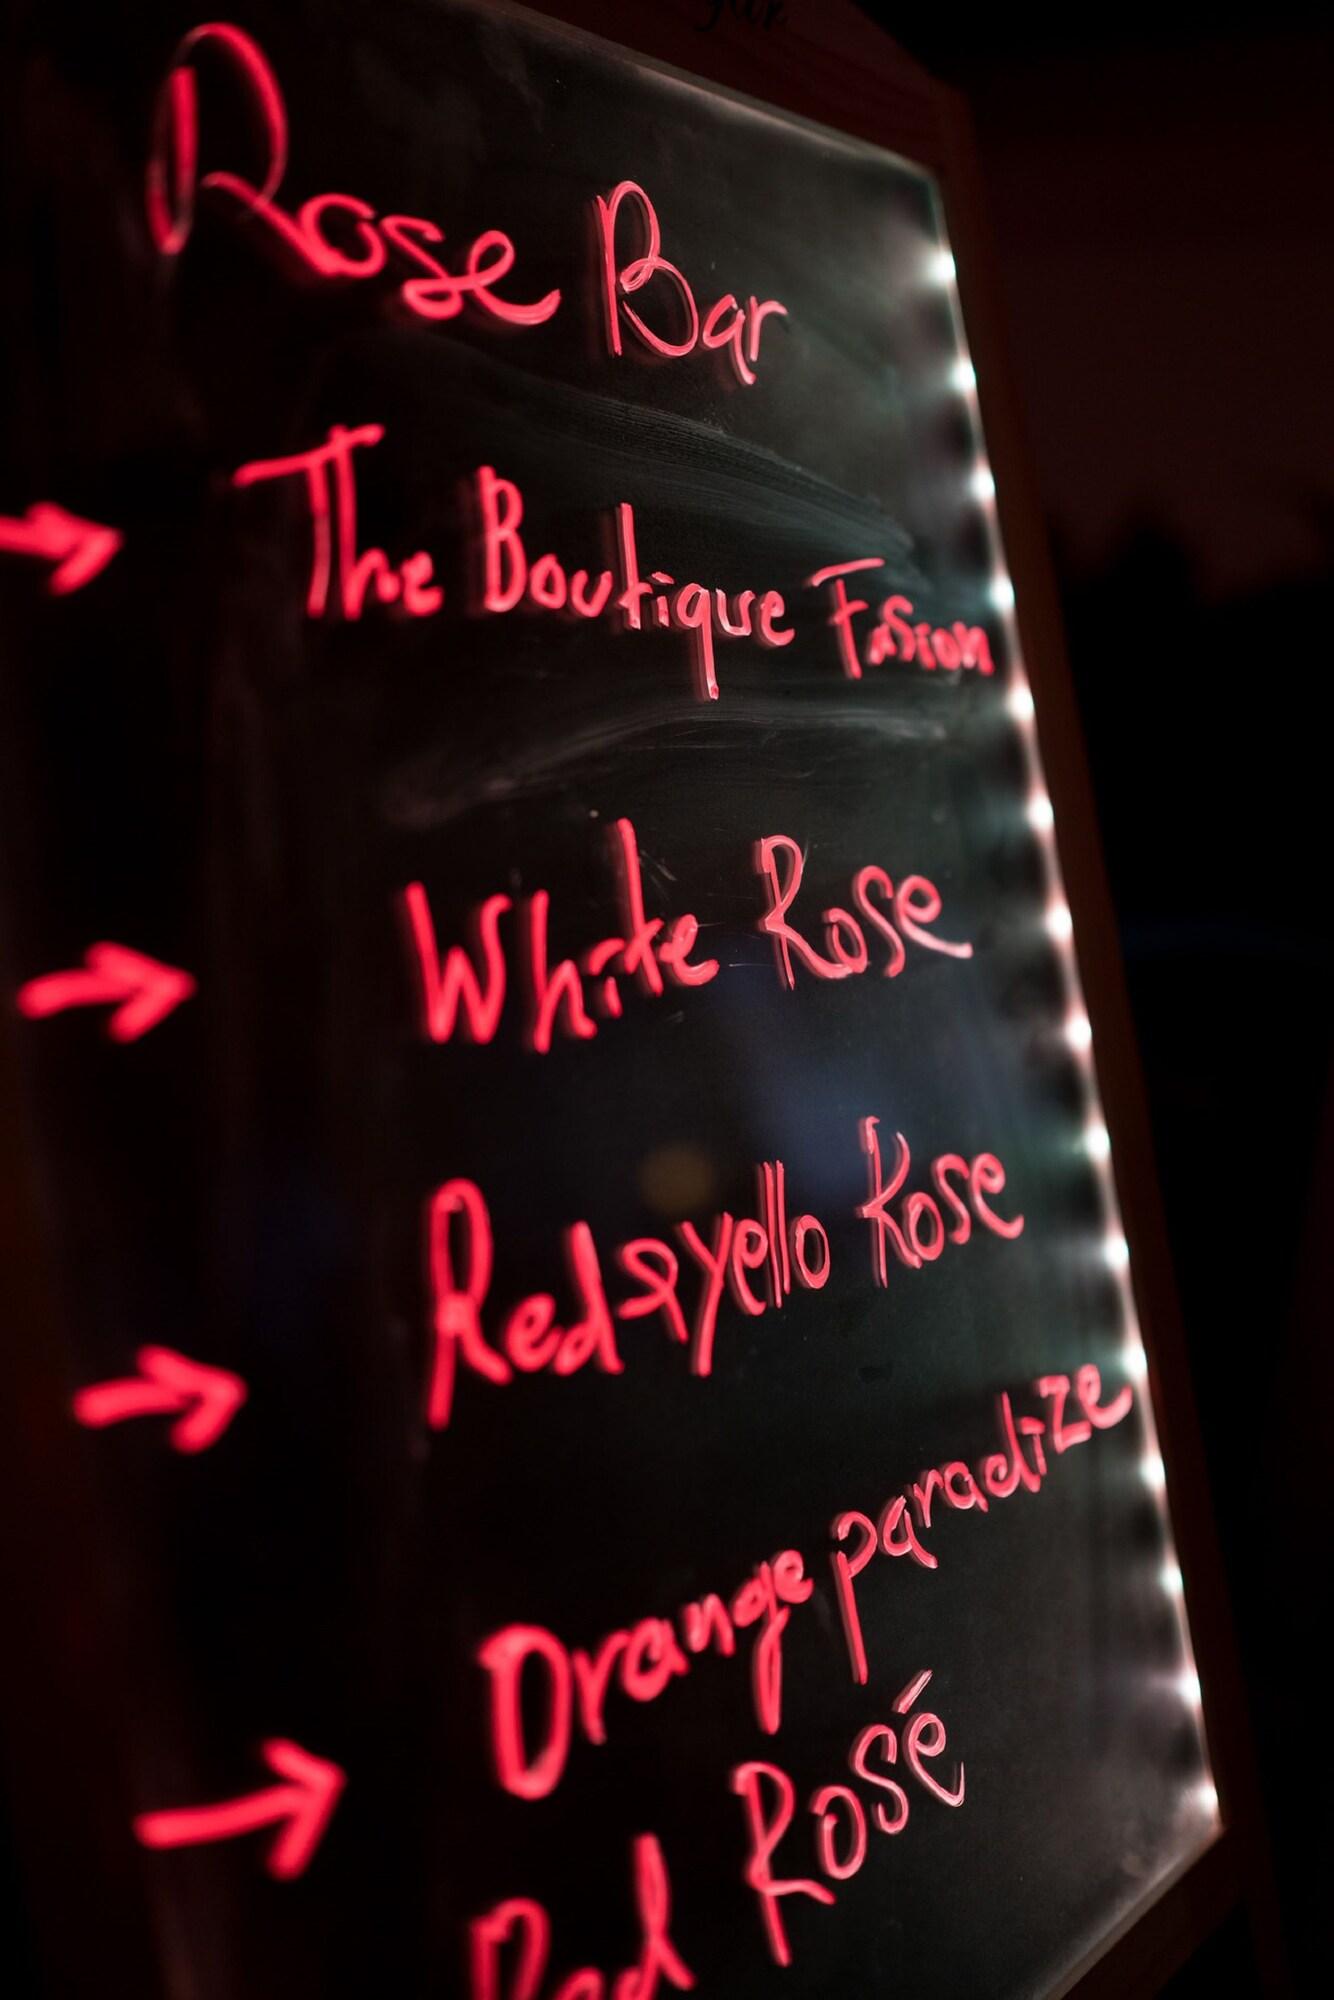 Rose Bar
The Boutique Fasion
White Rose
Red & yello Rose
Orange paradize
Red Rosé